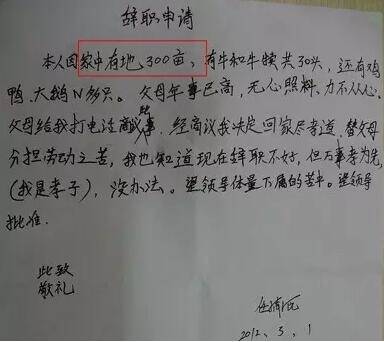 辞职申请
本人因家中有地、300亩，有牛和牛犊共30头，还有鸡
鸭、大鹅N多只。父母年事已高，无心照料、力不从心。
父母给我打电话商议此事，经商议我决定回家尽孝道，替父母
分担劳动之苦，我也知道现在辞职不好，但万事孝为先，
(我是孝子)，没办法。望领导体量下属的苦中。望领导
批准.
此致
敬礼
2012、3、1